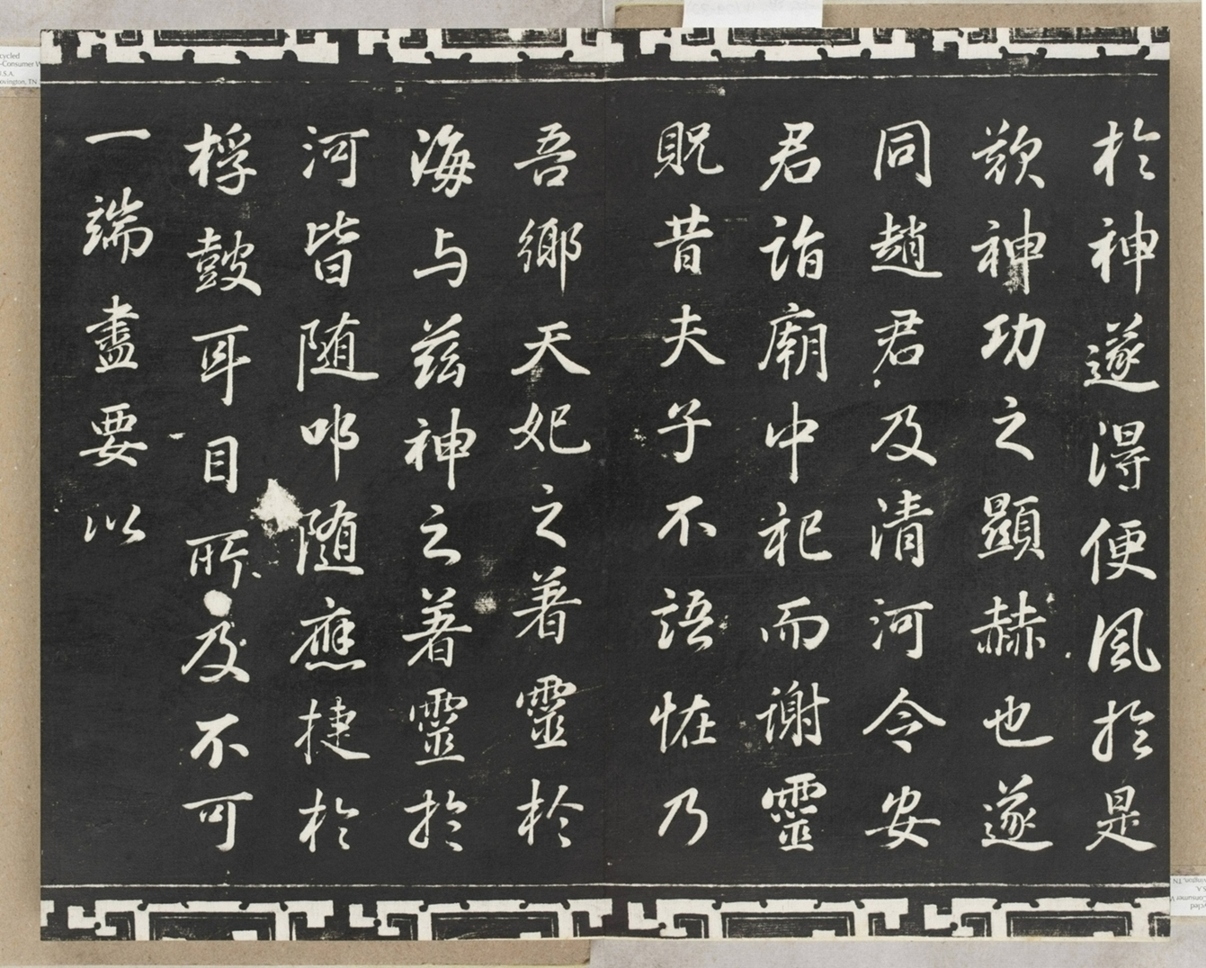 於神遂得便風於是
歎神功之顯赫也遂
同趙君及清河令安
君詣廟中祀而謝靈
貺昔夫子不語怪乃
吾鄉天妃之著靈於
海与茲神之著靈於
河皆随叩随應捷於
桴鼓耳目所及不可
一端盡要以